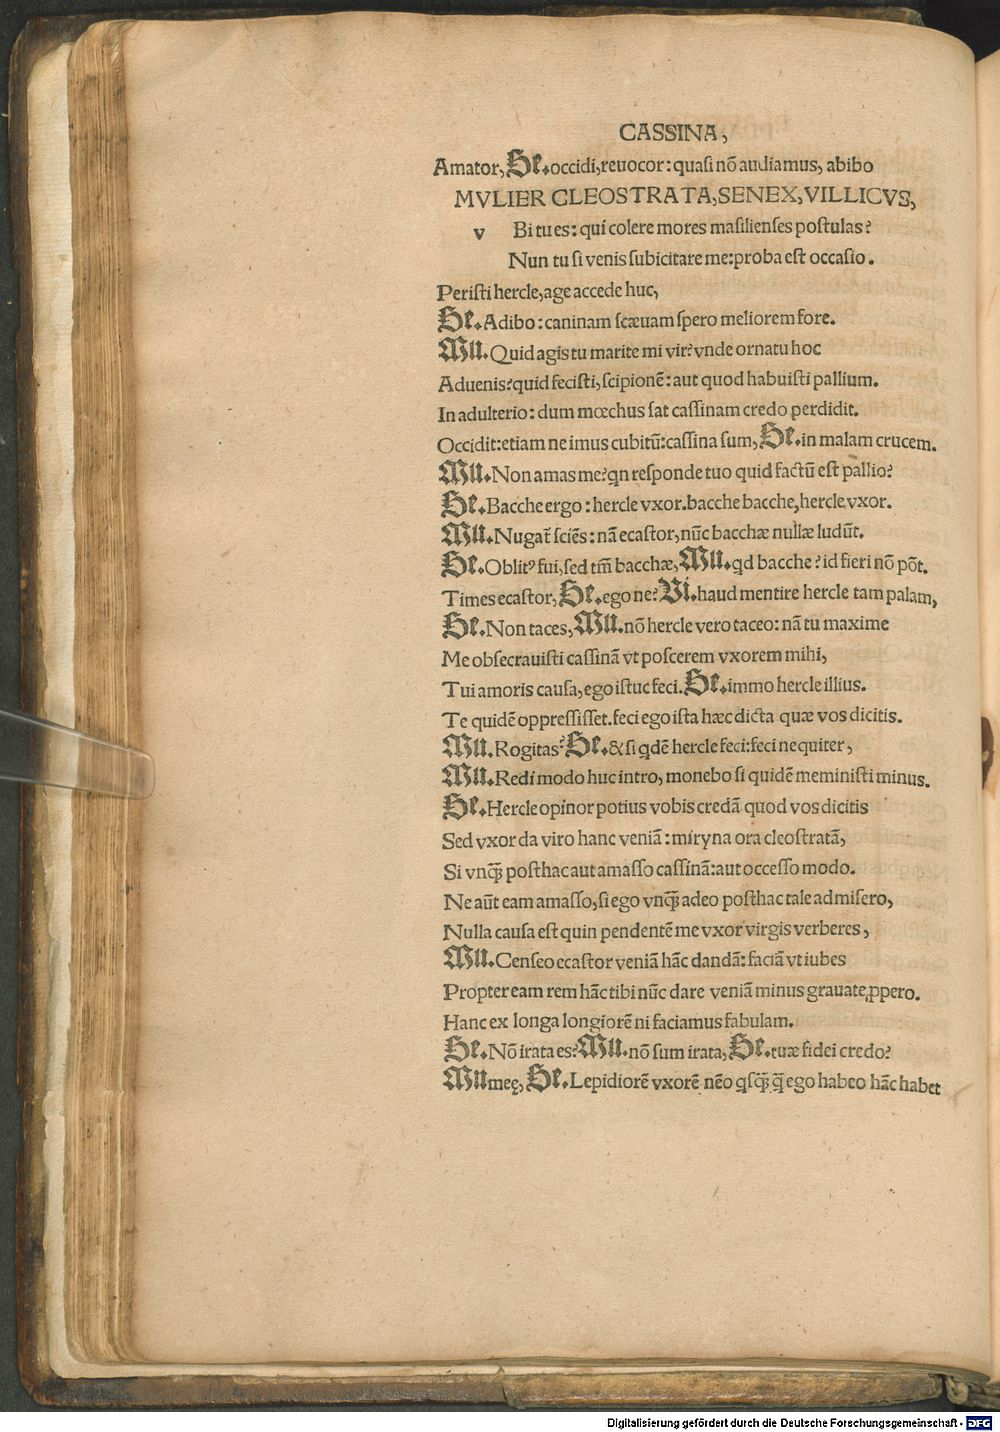 CASSINA,
Amator, Se. occidi, reuocor: quasi nō audiamus, abibo
MVLIER CLEOSTRATA, SENEX, VILLICVS,
v Bi tu es: qui colere mores masilienses postulas?
Nun tu si venis subicitare me: proba est occasio.
Peristi hercle, age accede huc,
Se. Adibo: caninam scæuam spero meliorem fore.
Mu. Quid agis tu marite mi vir? vnde ornatu hoc
Aduenis? quid fecisti, scipionē: aut quod habuisti pallium.
In adulterio: dum mœchus sat cassinam credo perdidit.
Occidit: etiam ne imus cubitū: cassina sum, Se. in malam crucem.
Mu. Non amas me? qn responde tuo quid factū est pallio?
Se. Bacche ergo: hercle vxor. bacche bacche, hercle vxor.
Mu. Nugat̄ sciēs: nā ecastor, nūc bacchæ nullæ ludūt.
Se. Oblitꝰ fui, sed tm̄ bacchæ, Mu. qd bacche? id fieri nō pōt.
Times ecastor, Se. ego ne? Vi. haud mentire hercle tam palam,
Se. Non taces, Mu. nō hercle vero taceo: nā tu maxime
Me obsecrauisti cassinā vt poscerem vxorem mihi,
Tui amoris causa, ego istuc feci. Se. immo hercle illius.
Te quidē oppressisset. feci ego ista hæc dicta quæ vos dicitis.
Mu. Rogitas? Se. & si qdē hercle feci: feci nequiter,
Mu. Redi modo huc intro, monebo si quidē meministi minus.
Se. Hercle opinor potius vobis credā quod vos dicitis
Sed vxor da viro hanc veniā: miryna ora cleostratā,
Si vnq̄ posthac aut amasso cassinā: aut occesso modo.
Ne aūt eam amasso, si ego vnq̄ adeo posthac tale admisero,
Nulla causa est quin pendentē me vxor virgis verberes,
Mu. Censeo ecastor veniā hāc dandā: faciā vt iubes
Propter eam rem hāc tibi nūc dare veniā minus grauate ꝓpero.
Hanc ex longa longiorē ni faciamus fabulam.
Se. Nō irata es? Mu. nō sum irata, Se. tuæ fidei credo?
Mu meę, Se. Lepidiorē vxorē nēo qsq̄ q̄ ego habeo hāc habet
Digitalisierung gefördert durch die Deutsche Forschungsgemeinschaft - DFG